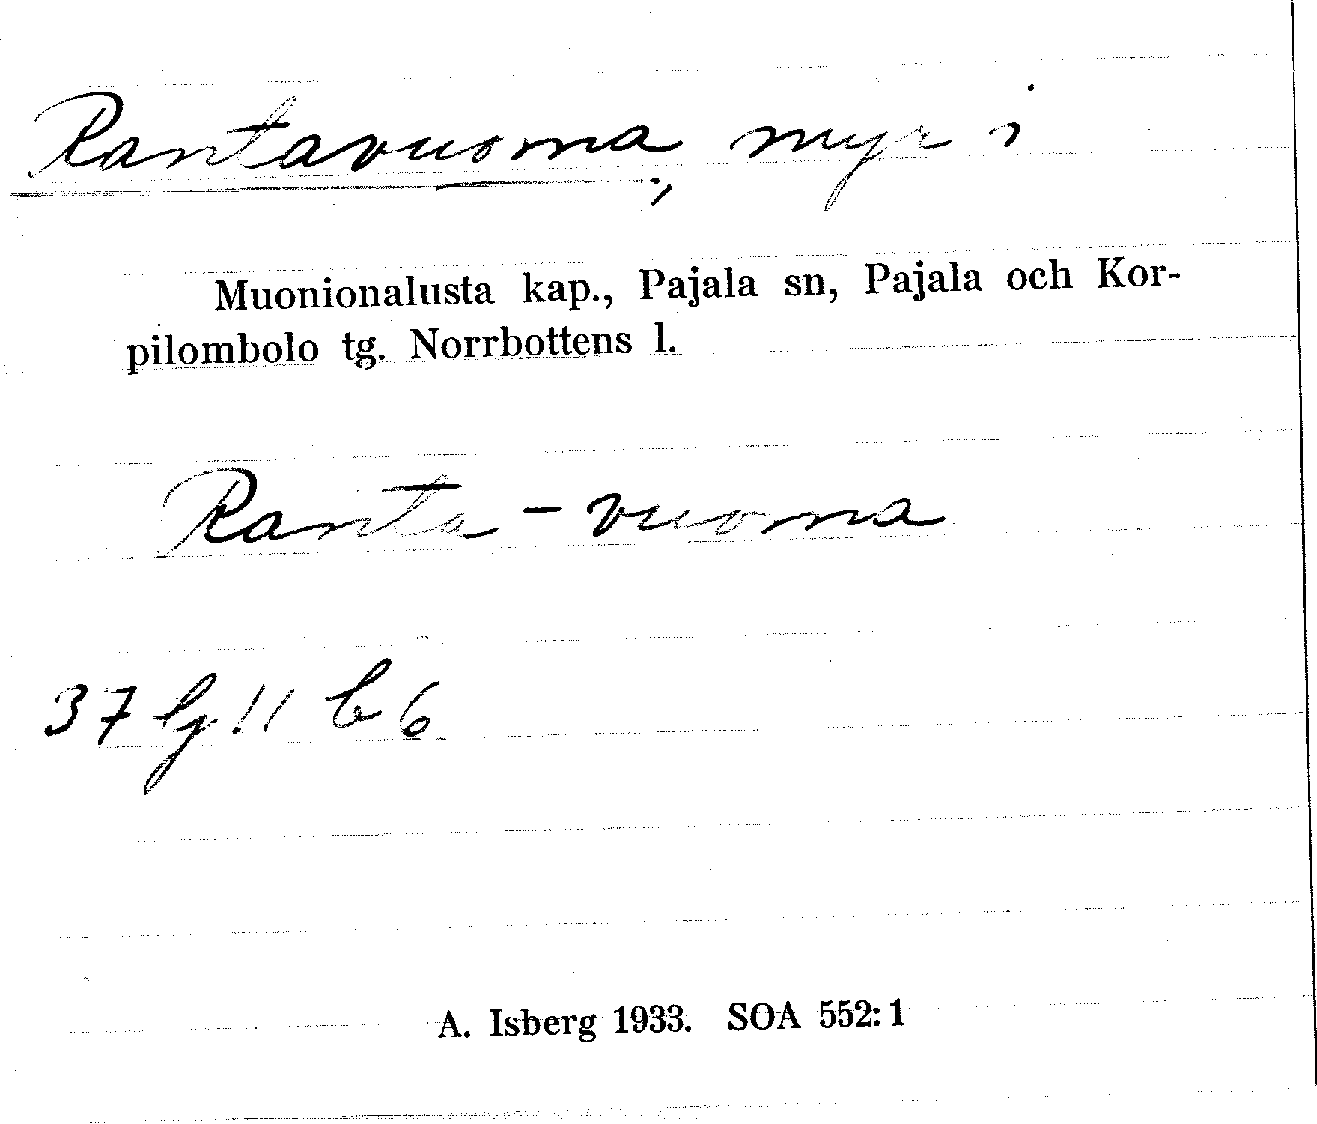 Rantavuoma, myr i
Muonionalusta kap., Pajala sn, Pajala och Kor-
pilombolo tg. Norrbottens l.
Ranta-vuoma
37 lg 11 b 6
A. Isberg 1933. SOA 552:1